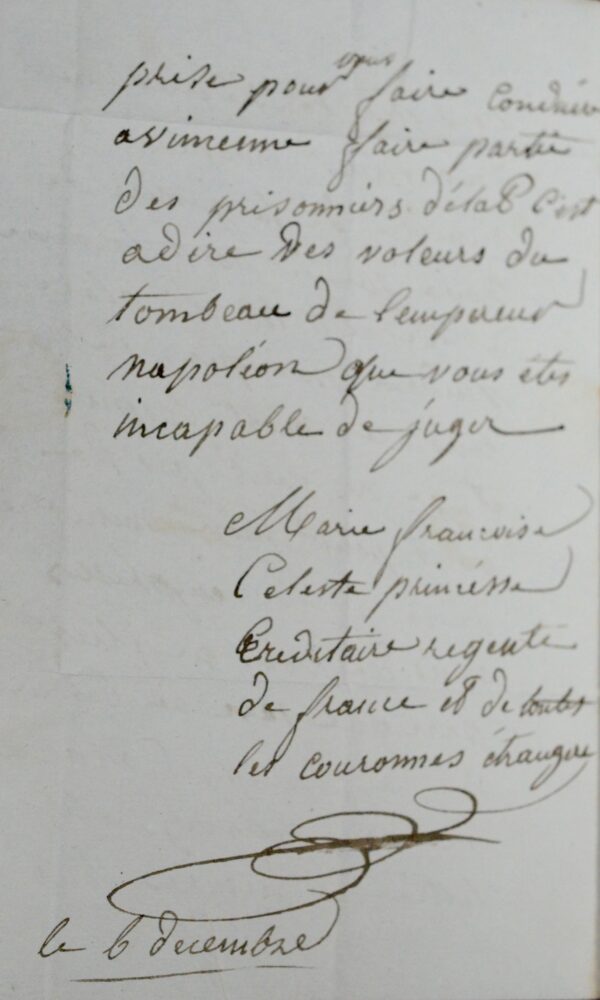 prise pour vous faire conduire
avincenne faire partie
des prisonniers d'état c'est
adire des voleurs du
tombeau de l'empereur
napoléon que vous étes
incapable de juger
Marie francoise
Celeste princésse
Ereditaire regente
de france et de toutes
les couronnes étrangere
le 6 decembre